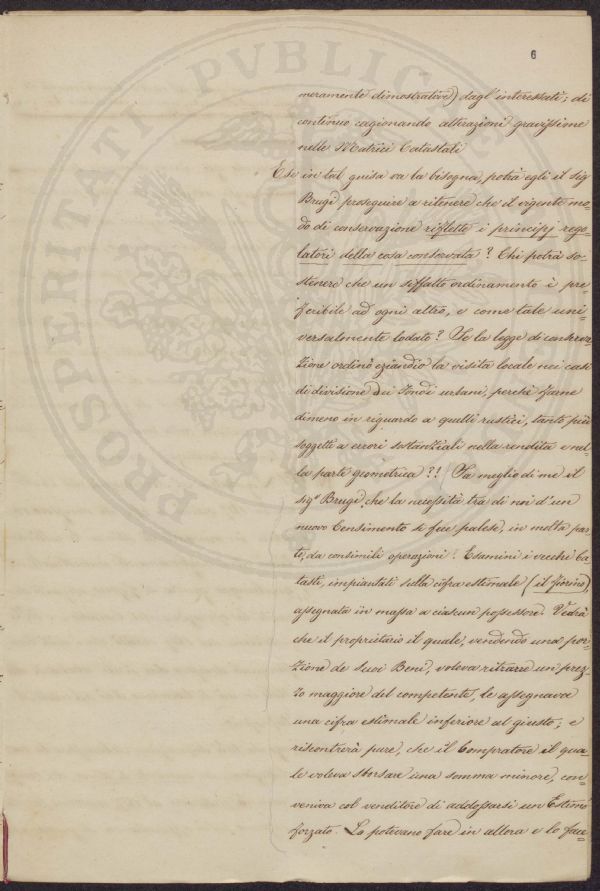 6
PROSPERITATI PVBLICAE
meramente dimostrative) dagl' interessati; di
continuo cagionando alterazioni gravissime
nelle Matrici Catastali
E se in tal guisa va la bisogna, potrà egli il sig
Brugi proseguire a ritenere che il vigente mo=
do di conservazione riflette i principj rego=
latori della cosa conservata? Chi potrà so=
stenere che un siffatto ordinamento è pre=
feribile ad ogni altro, e come tale uni=
versalmente lodato? Se la legge di conserva=
zione ordinò eziandio la visita locale nei casi
di divisione dei Fondi urbani, perché farne
dimeno in riguardo a quelli rustici, tanto più
soggetti a errori sostanziali nella rendita e nel=
la parte geometrica?! Sa meglio di me il
sigr Brugi, che la necessità tra di noi d'un
nuovo Censimento si fece palese, in molta par=
te, da consimili operazioni! Esamini i vecchi Ca=
tasti, impiantati sulla cifra estimale (il fiorino),
assegnata in massa a ciascun possessore. Vedrà
che il proprietario il quale, vendendo una por=
zione de suoi Beni, voleva ritrarre un prez=
zo maggiore del competente, le assegnava
una cifra estimale inferiore al giusto; e
riscontrerà pure, che il Compratore il qua=
le voleva sborsare una somma minore, con=
veniva col venditore di addossarsi un Estimo
forzato. Lo potevano fare in allora e lo face=